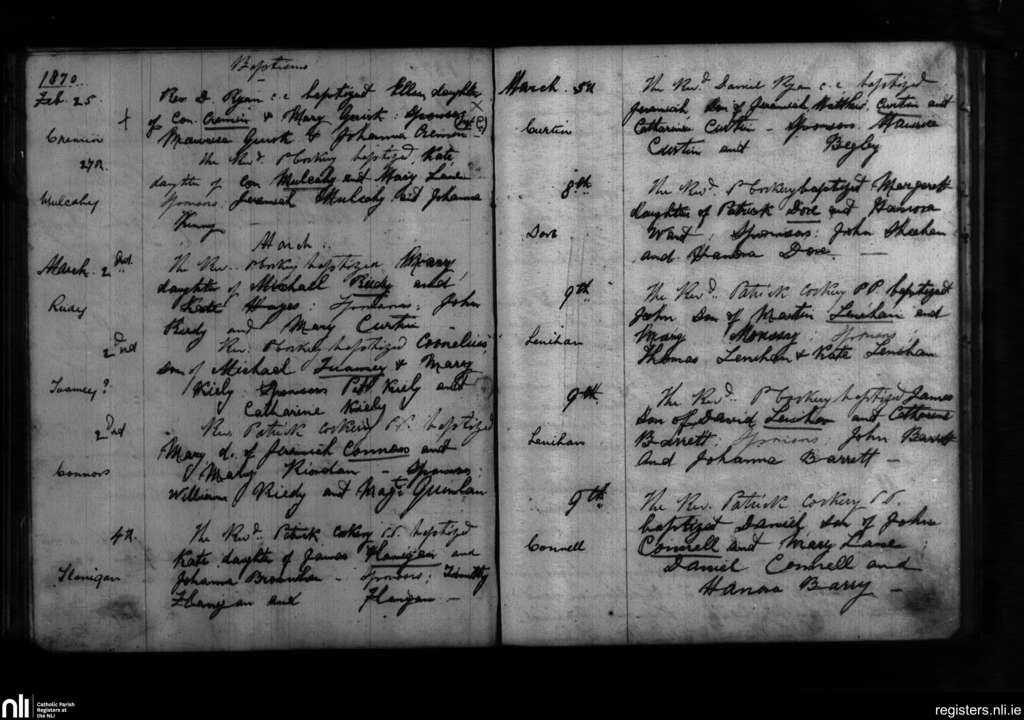 1870.
Baptisms
Feb. 25.
Rev D. Ryan c c baptized Ellen daughter
of Con. Cremin & Mary Quirk : Sponsors
Cremin
Maurice Quirk & Johanna Cremin
27th.
The Revd. P Corkery baptized, Kate,
daughter of Con Mulcahy and Mary Lane
Mulcahy
Sponsors. Jeremiah Mulcahy and Johanna
March :
March. 2nd.
The Rev. P Corkery baptized, Mary,
daughter of Michael Riedy and
Riedy
Kate Hayes : Sponsors : John
Riedy and Mary Curtin
2nd
Rev. P Corkery baptized Cornelius,
son of Michael Twomey & Mary
Twomey ?
Kiely Sponsors Patk Kiely and
Catharine Kiely
2nd
Rev. Patrick Corkery P.P. baptized
Mary d. of Jeremiah Connors and
Connors
Mary Riordan - Sponsors :
William Riedy and Magt Quinlan
4th.
The Revd. Patrick Corkery P.P. baptized
Kate daughter of James Flanigan and
Flanigan
Johanna Brosnhan - Sponsors ; Timothy
Flanigan and Flanigan -
March. 5th
The Revd. Daniel Ryan c.c. baptized
Jeremiah son of Jeremiah Matthew Curtin and
Curtin
Catharine Curtin - Sponsors. Maurice
Curtin and Begley
8th.
The Revd. P Corkery baptized Margarett
daughter of Patrick Dore and Hanora
Dore
Ward ; Sponsors : John Sheehan
and Hanora Dore. -
9th.
The Revd. Patrick Corkery P.P. baptized
John son of Martin Lenihan and
Lenihan
Mary ; Sponsors :
Thomas Lenihan & Kate Lenihan
9th.
The Revd. P Corkery baptized James
son of David Lenihan and Catherine
Lenihan
Barrett ; Sponsors ; John Barrett
and Johanna Barrett -
9th.
The Rev. Patrick Corkery P.P.
baptized Daniel son of John
Connell
Connell and Mary Lane ;
Daniel Connell and
Hanora Barry -
nli
Catholic Parish
Registers at
the NLI
registers.nli.ie